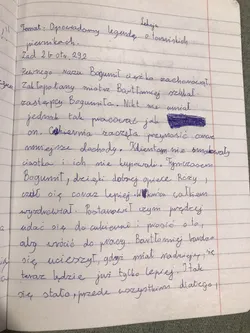 Lekcja
Temat: Opowiadamy legendę o toruńskich
piernikach.
Zad 2 b str. 292
Pewnego razu Bogumił ciężko zachorował.
Zakłopotany mistrz Bartłomiej szukał
zastępcy Bogumiła. Nikt nie umiał
jednak tak pracować jak
on. Cukiernia zaczęła przynosić coraz
mniejsze dochody. Klientom nie smakowały
ciastka i ich nie kupowali. Tymczasem
Bogumił, dzięki dobrej opiece Rózy,
czuł się coraz lepiej. całkiem
wyzdrowiał. Postanowił czym prędzej
udać się do cukierni i prosić o to,
aby wrócić do pracy. Bartłomiej bardzo
się ucieszył, gdyż miał nadzieję, że
teraz będzie już tylko lepiej. I tak
się stało, przede wszystkim dlatego,